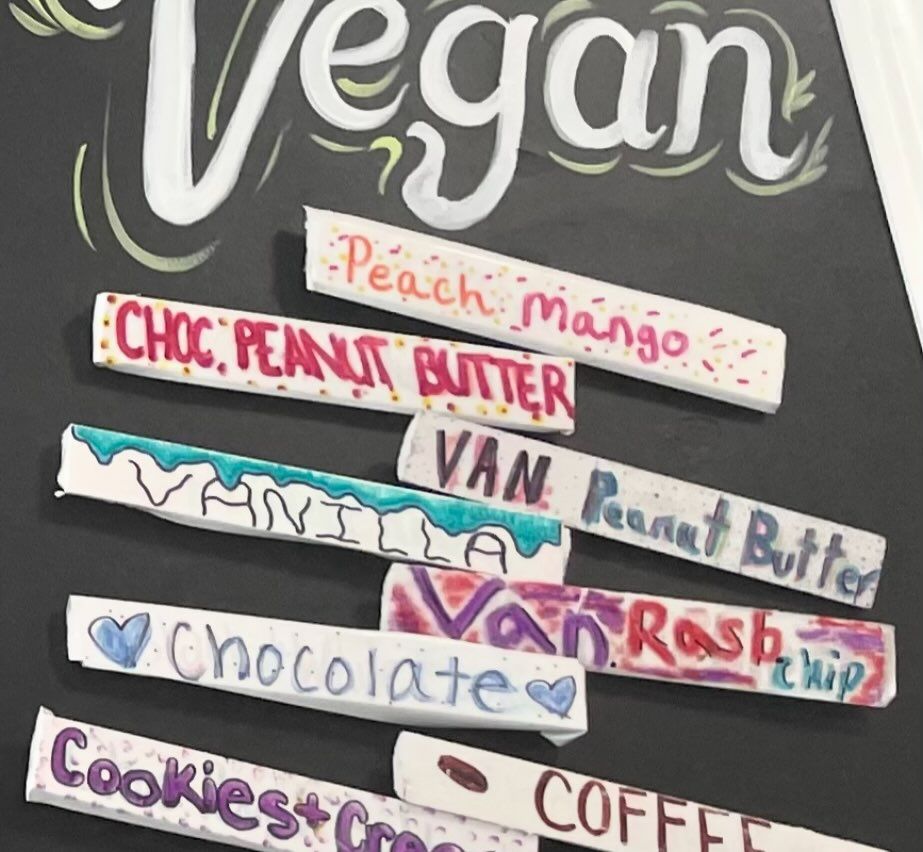 Vegan
Peach Mango
CHOC. PEANUT BUTTER
VAN Peanut Butter
VANILLA
Van. Rasb chip
Chocolate
COFFEE
Cookies +